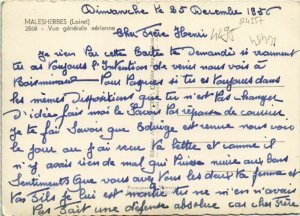 Dimanche le 25 Decembre 1955
MALESHERBES (Loiret)
2868 - Vue générale aérienne
Cher Frère Henri
Je viens par cette Carte te Demander si vraiment
tu as toujours l'Intention de venir nous voir à
Boismorand Pour Paques si tu es toujours dans
les mêmes Dispositions que tu n'est Pas changer
D'idée fais moi le Savoir Par réponse de courrier
Je te fai Savoir que est venue nous voir
le jour ou J'ai reçue ta lettre et comme il
n'y avais rien de mal qui Puisse nuire aux bons
Sentiments que vous avez tous les deux ta femme et
Vas Je lui est montré tu ne m'en n'avais
Pas Fait une défense absolue car cher Frère